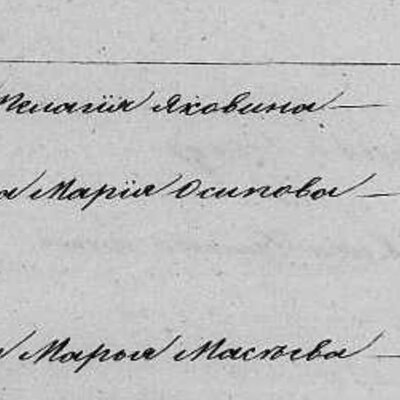 Пелагія Яковина
а Марія Осипова
Марья Масѣева